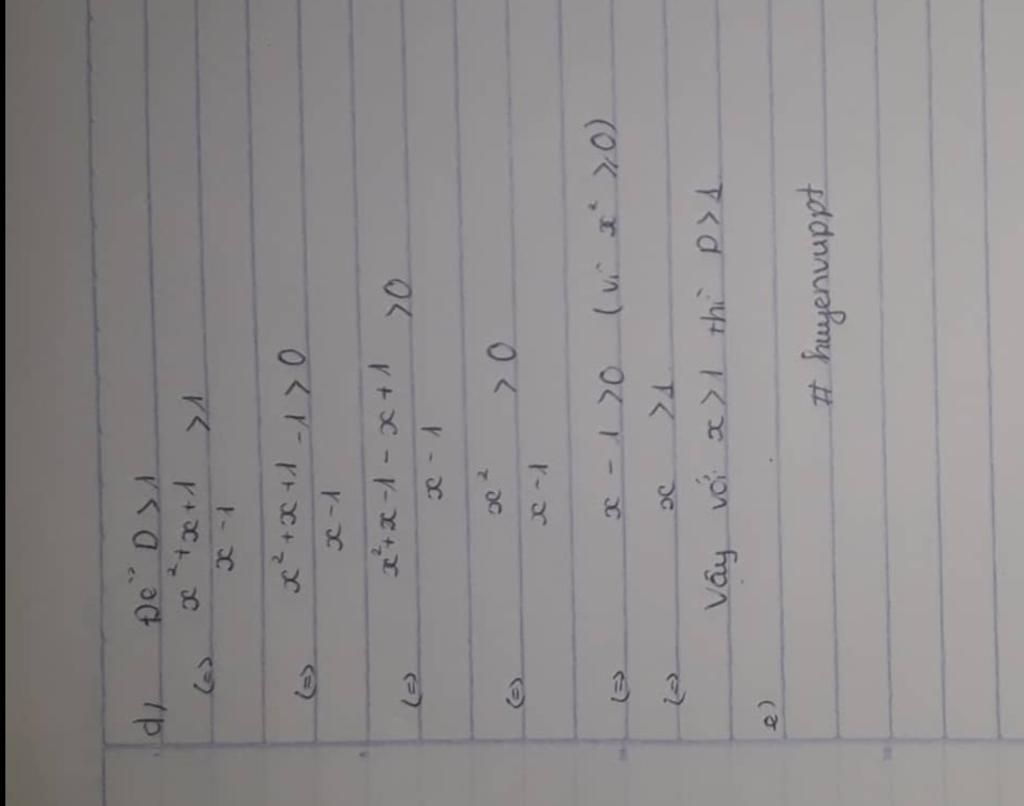 d, Để D > 1
(=) x² + x + 1 / x - 1 > 1
(=) x² + x + 1 / x - 1 - 1 > 0
(=) x² + x - 1 - x + 1 / x - 1 > 0
(=) x² / x - 1 > 0
(=) x - 1 > 0 (vì x² ≥ 0)
(=) x > 1
Vậy với x > 1 thì D > 1
e)
# huyenvuppt